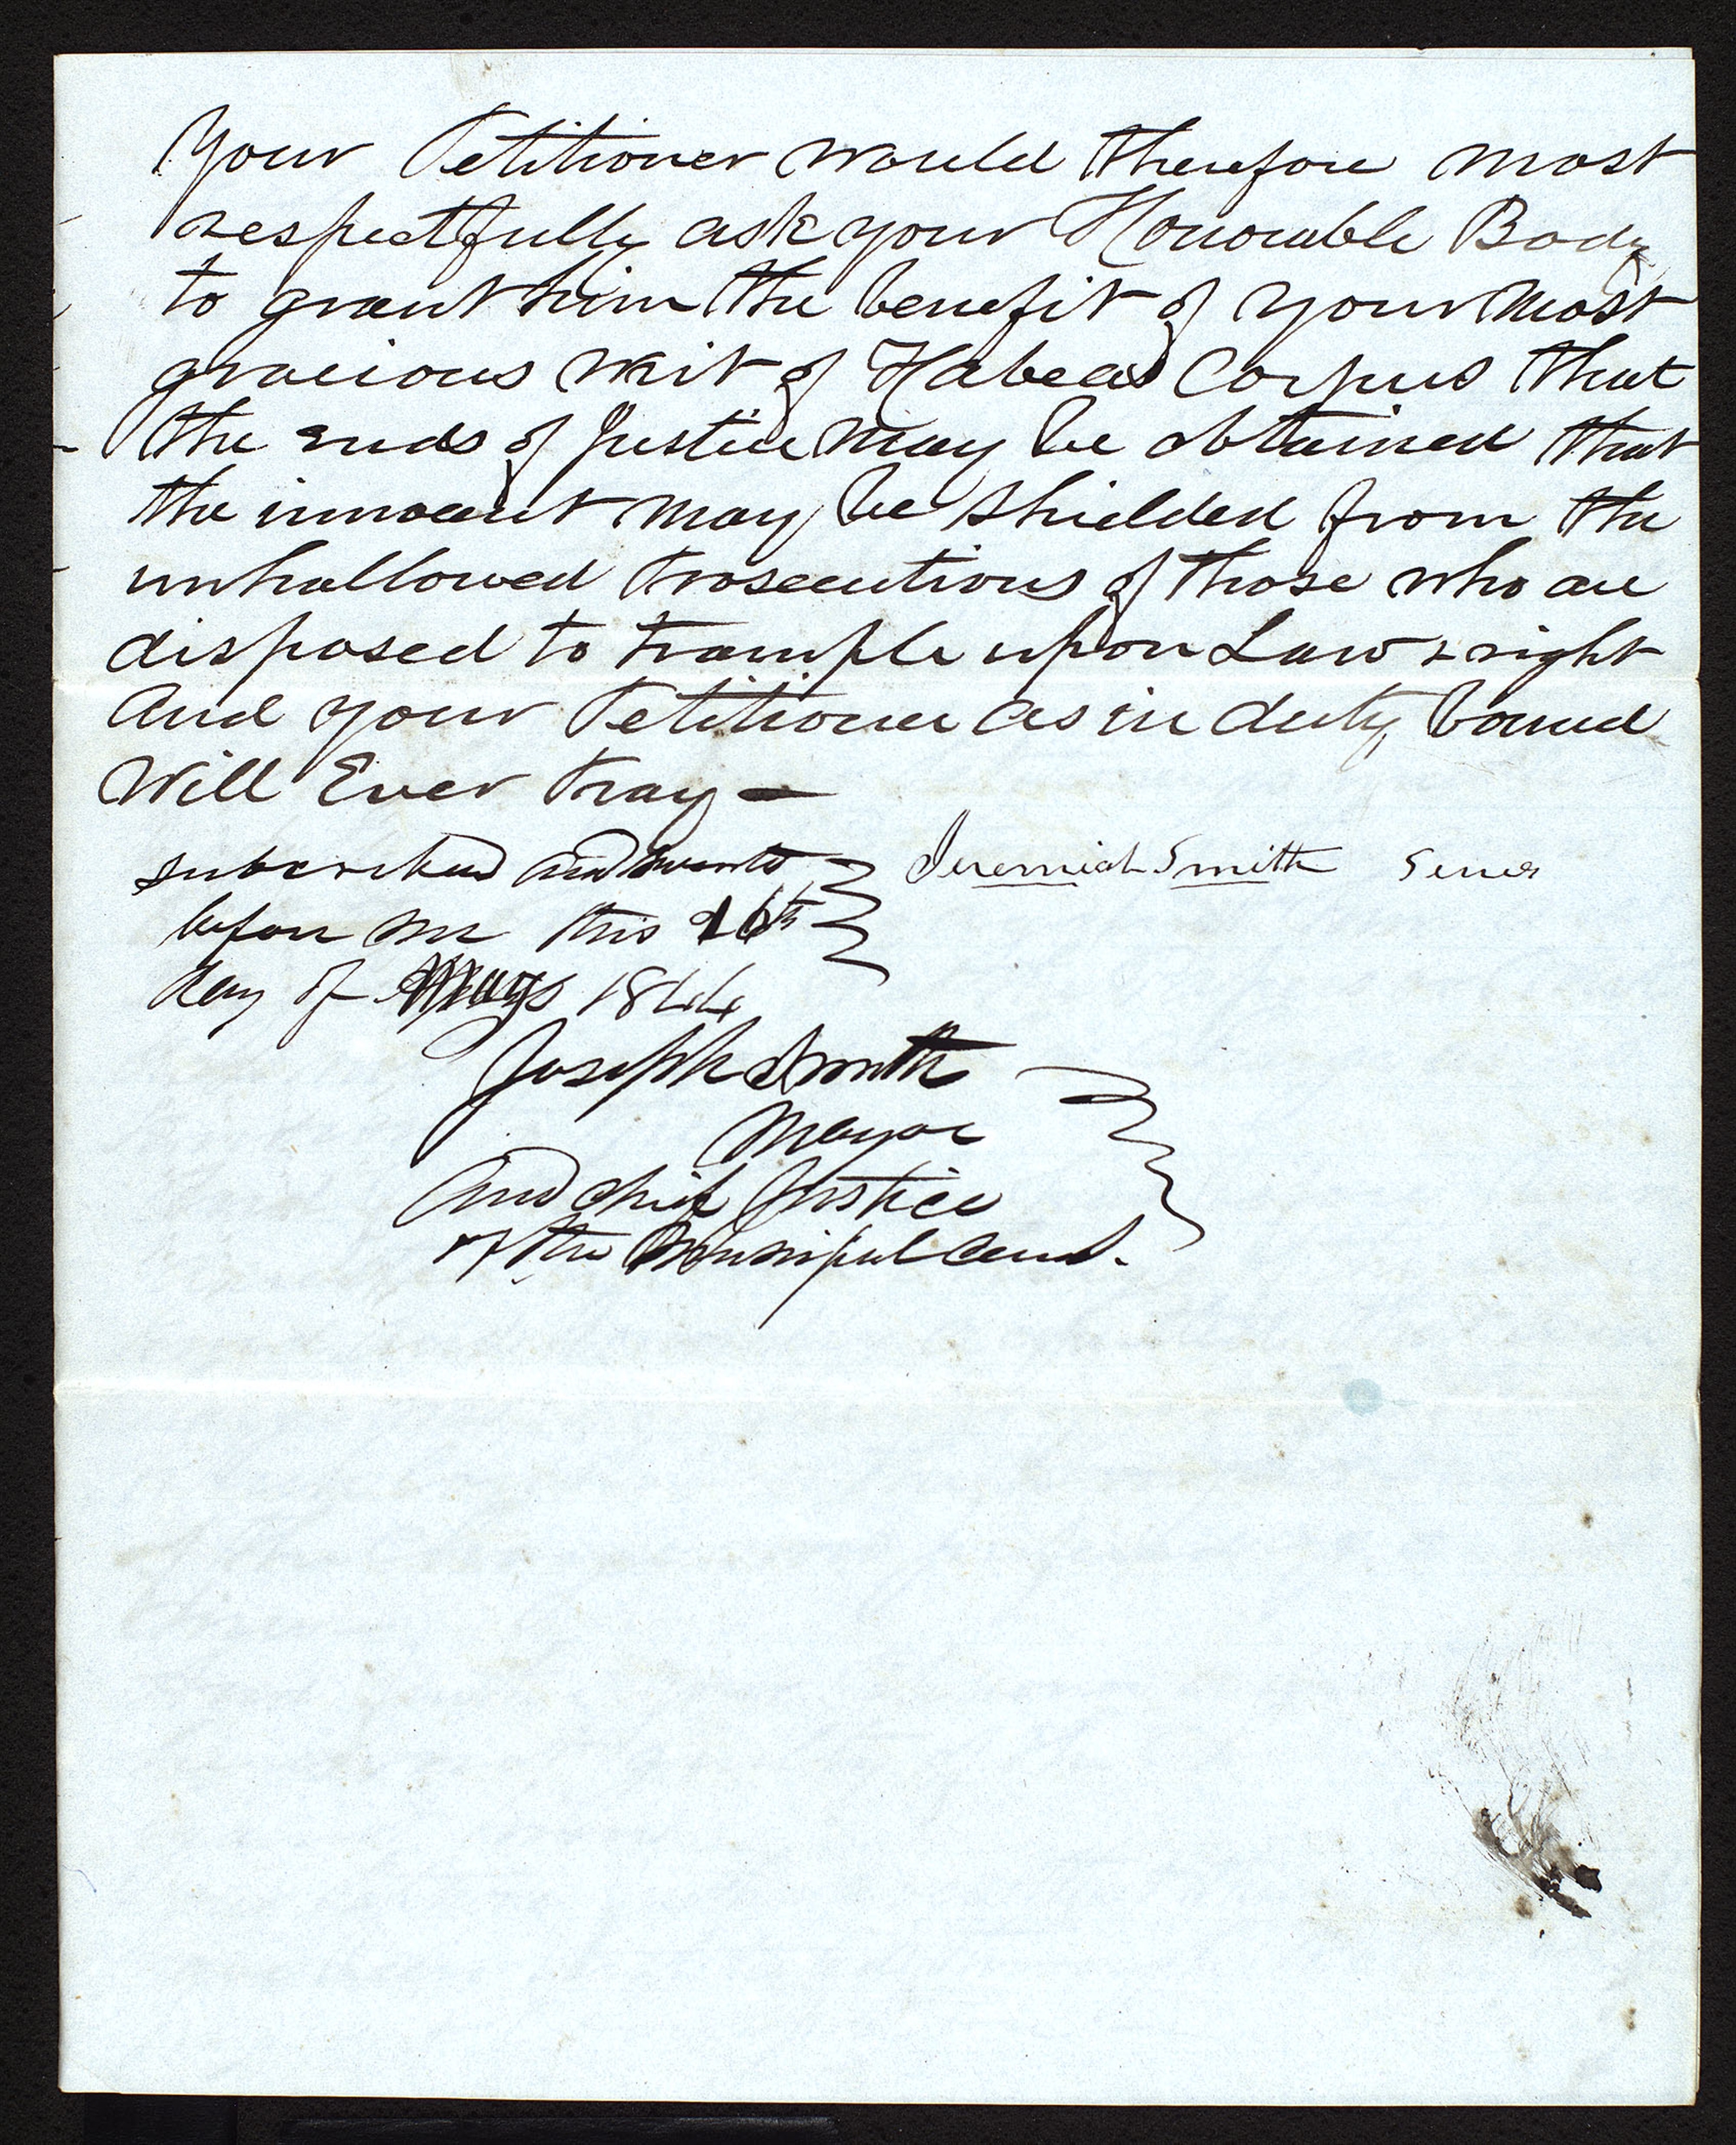 Your Petitioner would therefore most
respectfully ask your Honorable Body
to grant him the benefit of your most
gracious writ of Habeas Corpus that
the ends of Justice may be obtained that
the innocent may be shielded from the
unhallowed Prosecutions of those who are
disposed to trample upon Law & right
And your Petitioner as in duty bound
Will Ever Pray —
subscribed and
Jeremiah Smith Sener
before me this 16th
day of May 1844
Joseph Smith
Mayor
and chief Justice
of the Municipal